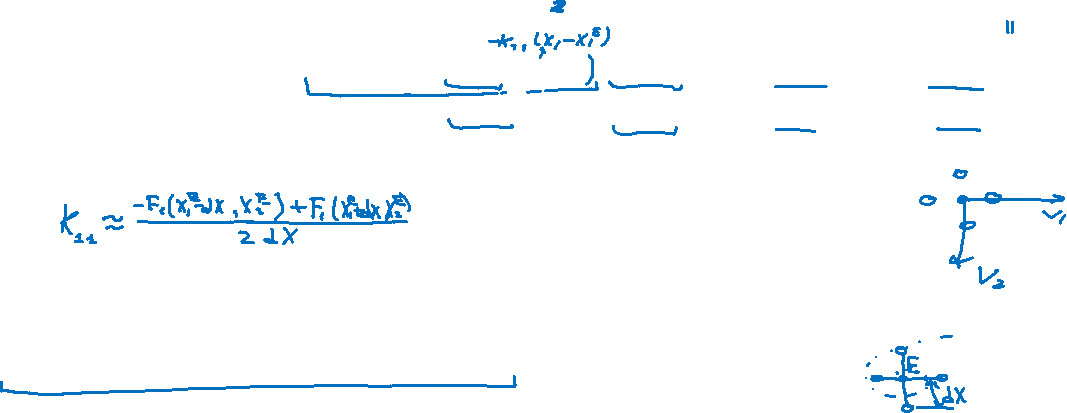 2
-K₁₁(x₁-x₁ᴱ)
K₁₁ ≈ (-F₁(x₁ᴱ-dx, x₂ᴱ) + F₁(x₁ᴱ+dx, x₂ᴱ)) / 2dx
V₁
V₂
E
dx